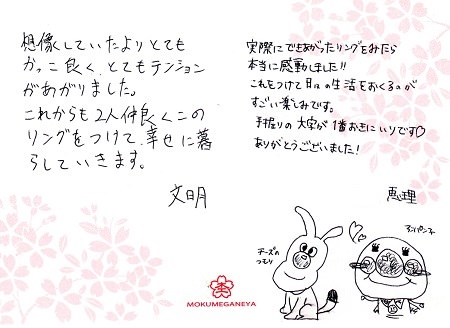 想像していたよりとても
かっこ良く、とてもテンション
があがりました。
これからも2人仲良くこの
リングをつけて、幸せに暮
らしていきます。
文明
実際にできあがったリングをみたら
本当に感動しました!!
これをつけて日々の生活をおくるのが
すごい楽しみです。
手掘りの文字が1番おきにいりです♡
ありがとうございました!
恵理
チーズの
つもり
MOKUMEGANEYA